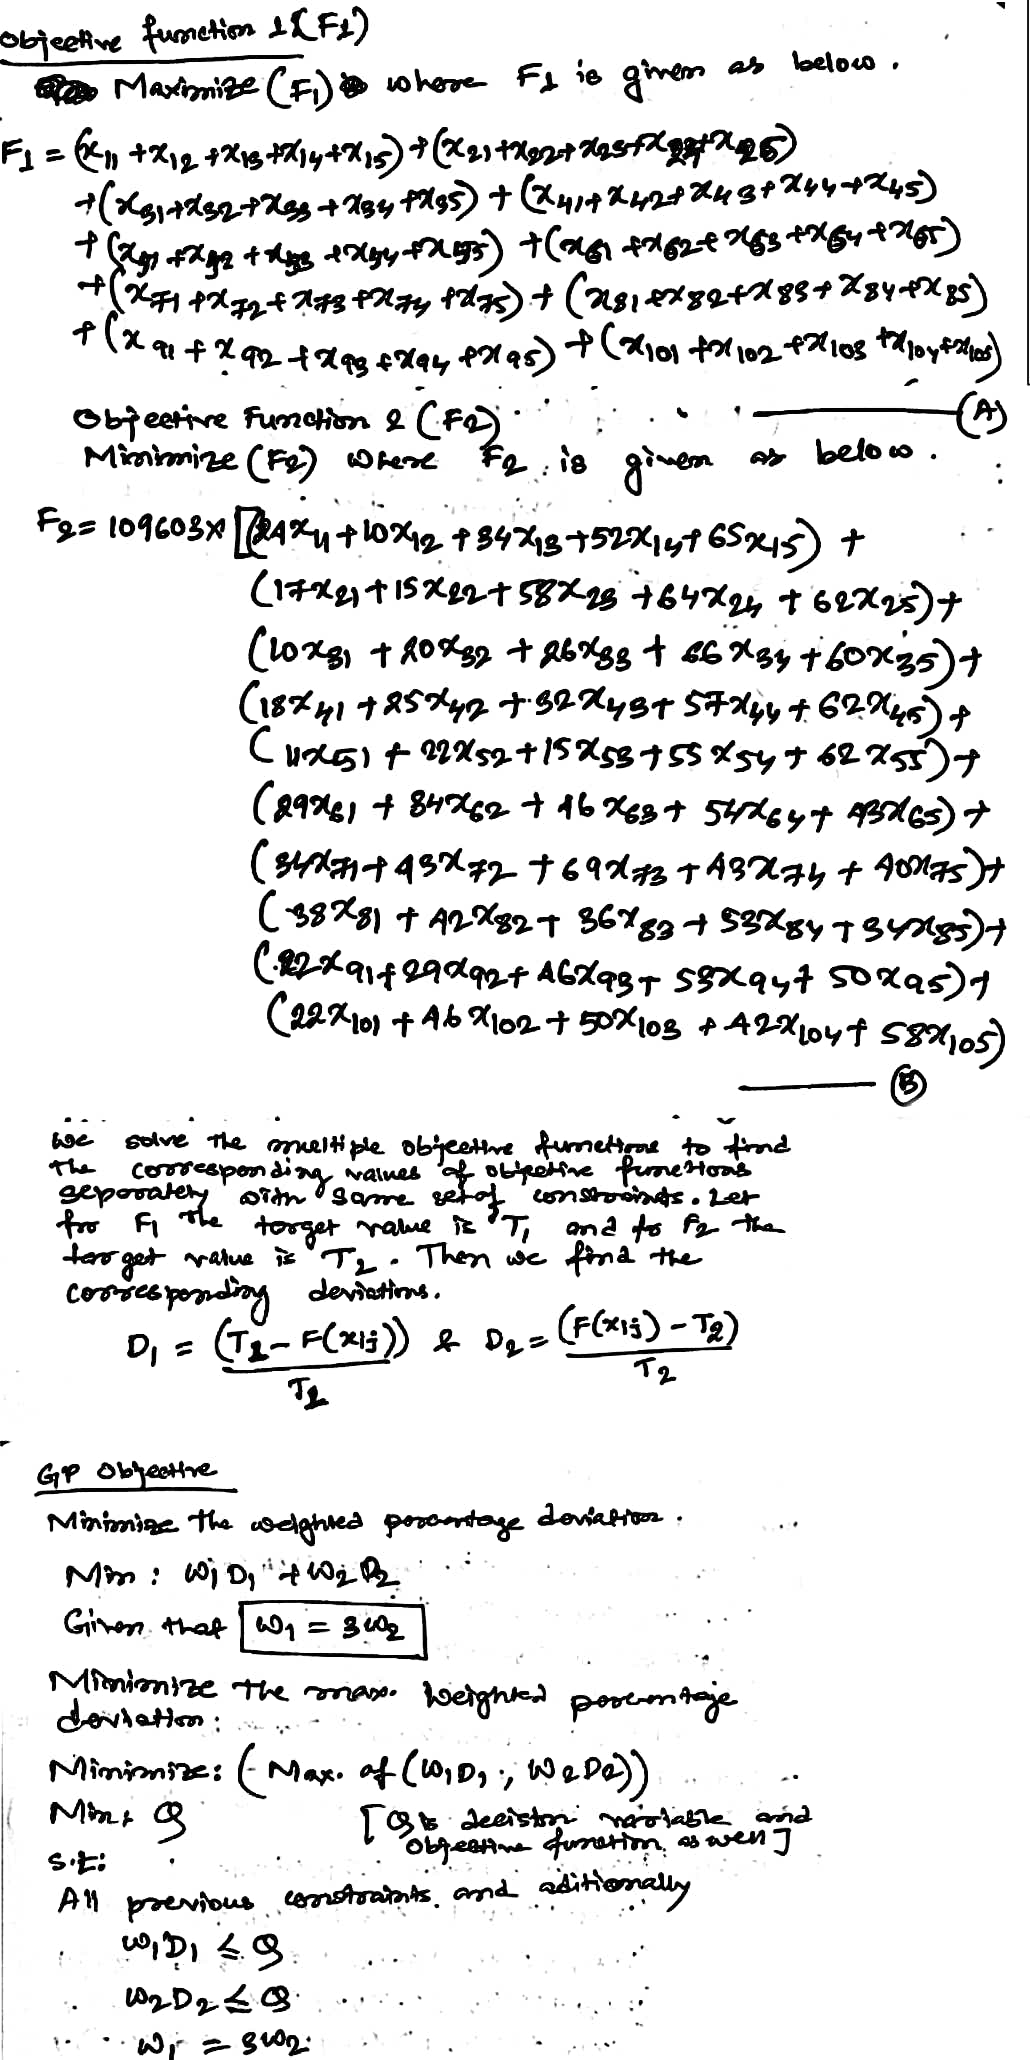 Objective function 1 (F1)
Maximize (F1) where F1 is given as below.
F1 = (x11 + x12 + x13 + x14 + x15) + (x21 + x22 + x23 + x24 + x25)
+ (x31 + x32 + x33 + x34 + x35) + (x41 + x42 + x43 + x44 + x45)
+ (x51 + x52 + x53 + x54 + x55) + (x61 + x62 + x63 + x64 + x65)
+ (x71 + x72 + x73 + x74 + x75) + (x81 + x82 + x83 + x84 + x85)
+ (x91 + x92 + x93 + x94 + x95) + (x101 + x102 + x103 + x104 + x105)
(A)
Objective Function 2 (F2)
Minimize (F2) where F2 is given as below.
F2 = 109603 x [(24x11 + 10x12 + 34x13 + 52x14 + 65x15) +
(17x21 + 15x22 + 58x23 + 64x24 + 62x25) +
(10x31 + 20x32 + 26x33 + 66x34 + 60x35) +
(18x41 + 25x42 + 32x43 + 57x44 + 62x45) +
(11x51 + 22x52 + 15x53 + 55x54 + 62x55) +
(29x61 + 34x62 + 46x63 + 54x64 + 43x65) +
(34x71 + 43x72 + 69x73 + 43x74 + 40x75) +
(38x81 + 42x82 + 36x83 + 53x84 + 34x85) +
(22x91 + 29x92 + 46x93 + 53x94 + 50x95) +
(22x101 + 46x102 + 50x103 + 42x104 + 58x105)
(B)
We solve the multiple objective functions to find
the corresponding values of objective functions
separately with same set of constraints. Let
for F1 the target value is T1 and for F2 the
target value is T2. Then we find the
corresponding deviations.
D1 = (T1 - F(xij)) / T1 & D2 = (F(xij) - T2) / T2
GP Objective
Minimize the weighted percentage deviation.
Min : w1D1 + w2D2
Given that w1 = 3w2
Minimize the max. weighted percentage
deviation:
Minimize: (Max. of (w1D1, w2D2))
Min: Q [Q is decision variable and
objective function as well]
s.t:
All previous constraints and aditionally
w1D1 ≤ Q
w2D2 ≤ Q
w1 = 3w2